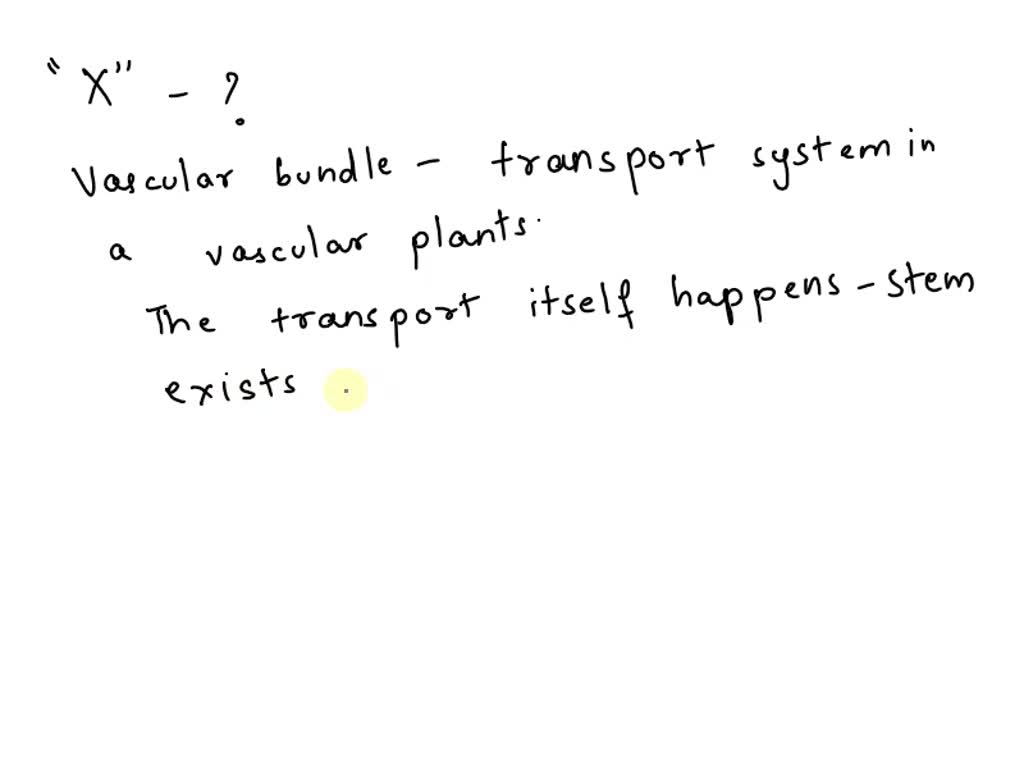 "X" - ?
Vascular bundle - transport system in
a vascular plants.
The transport itself happens - stem
exists .